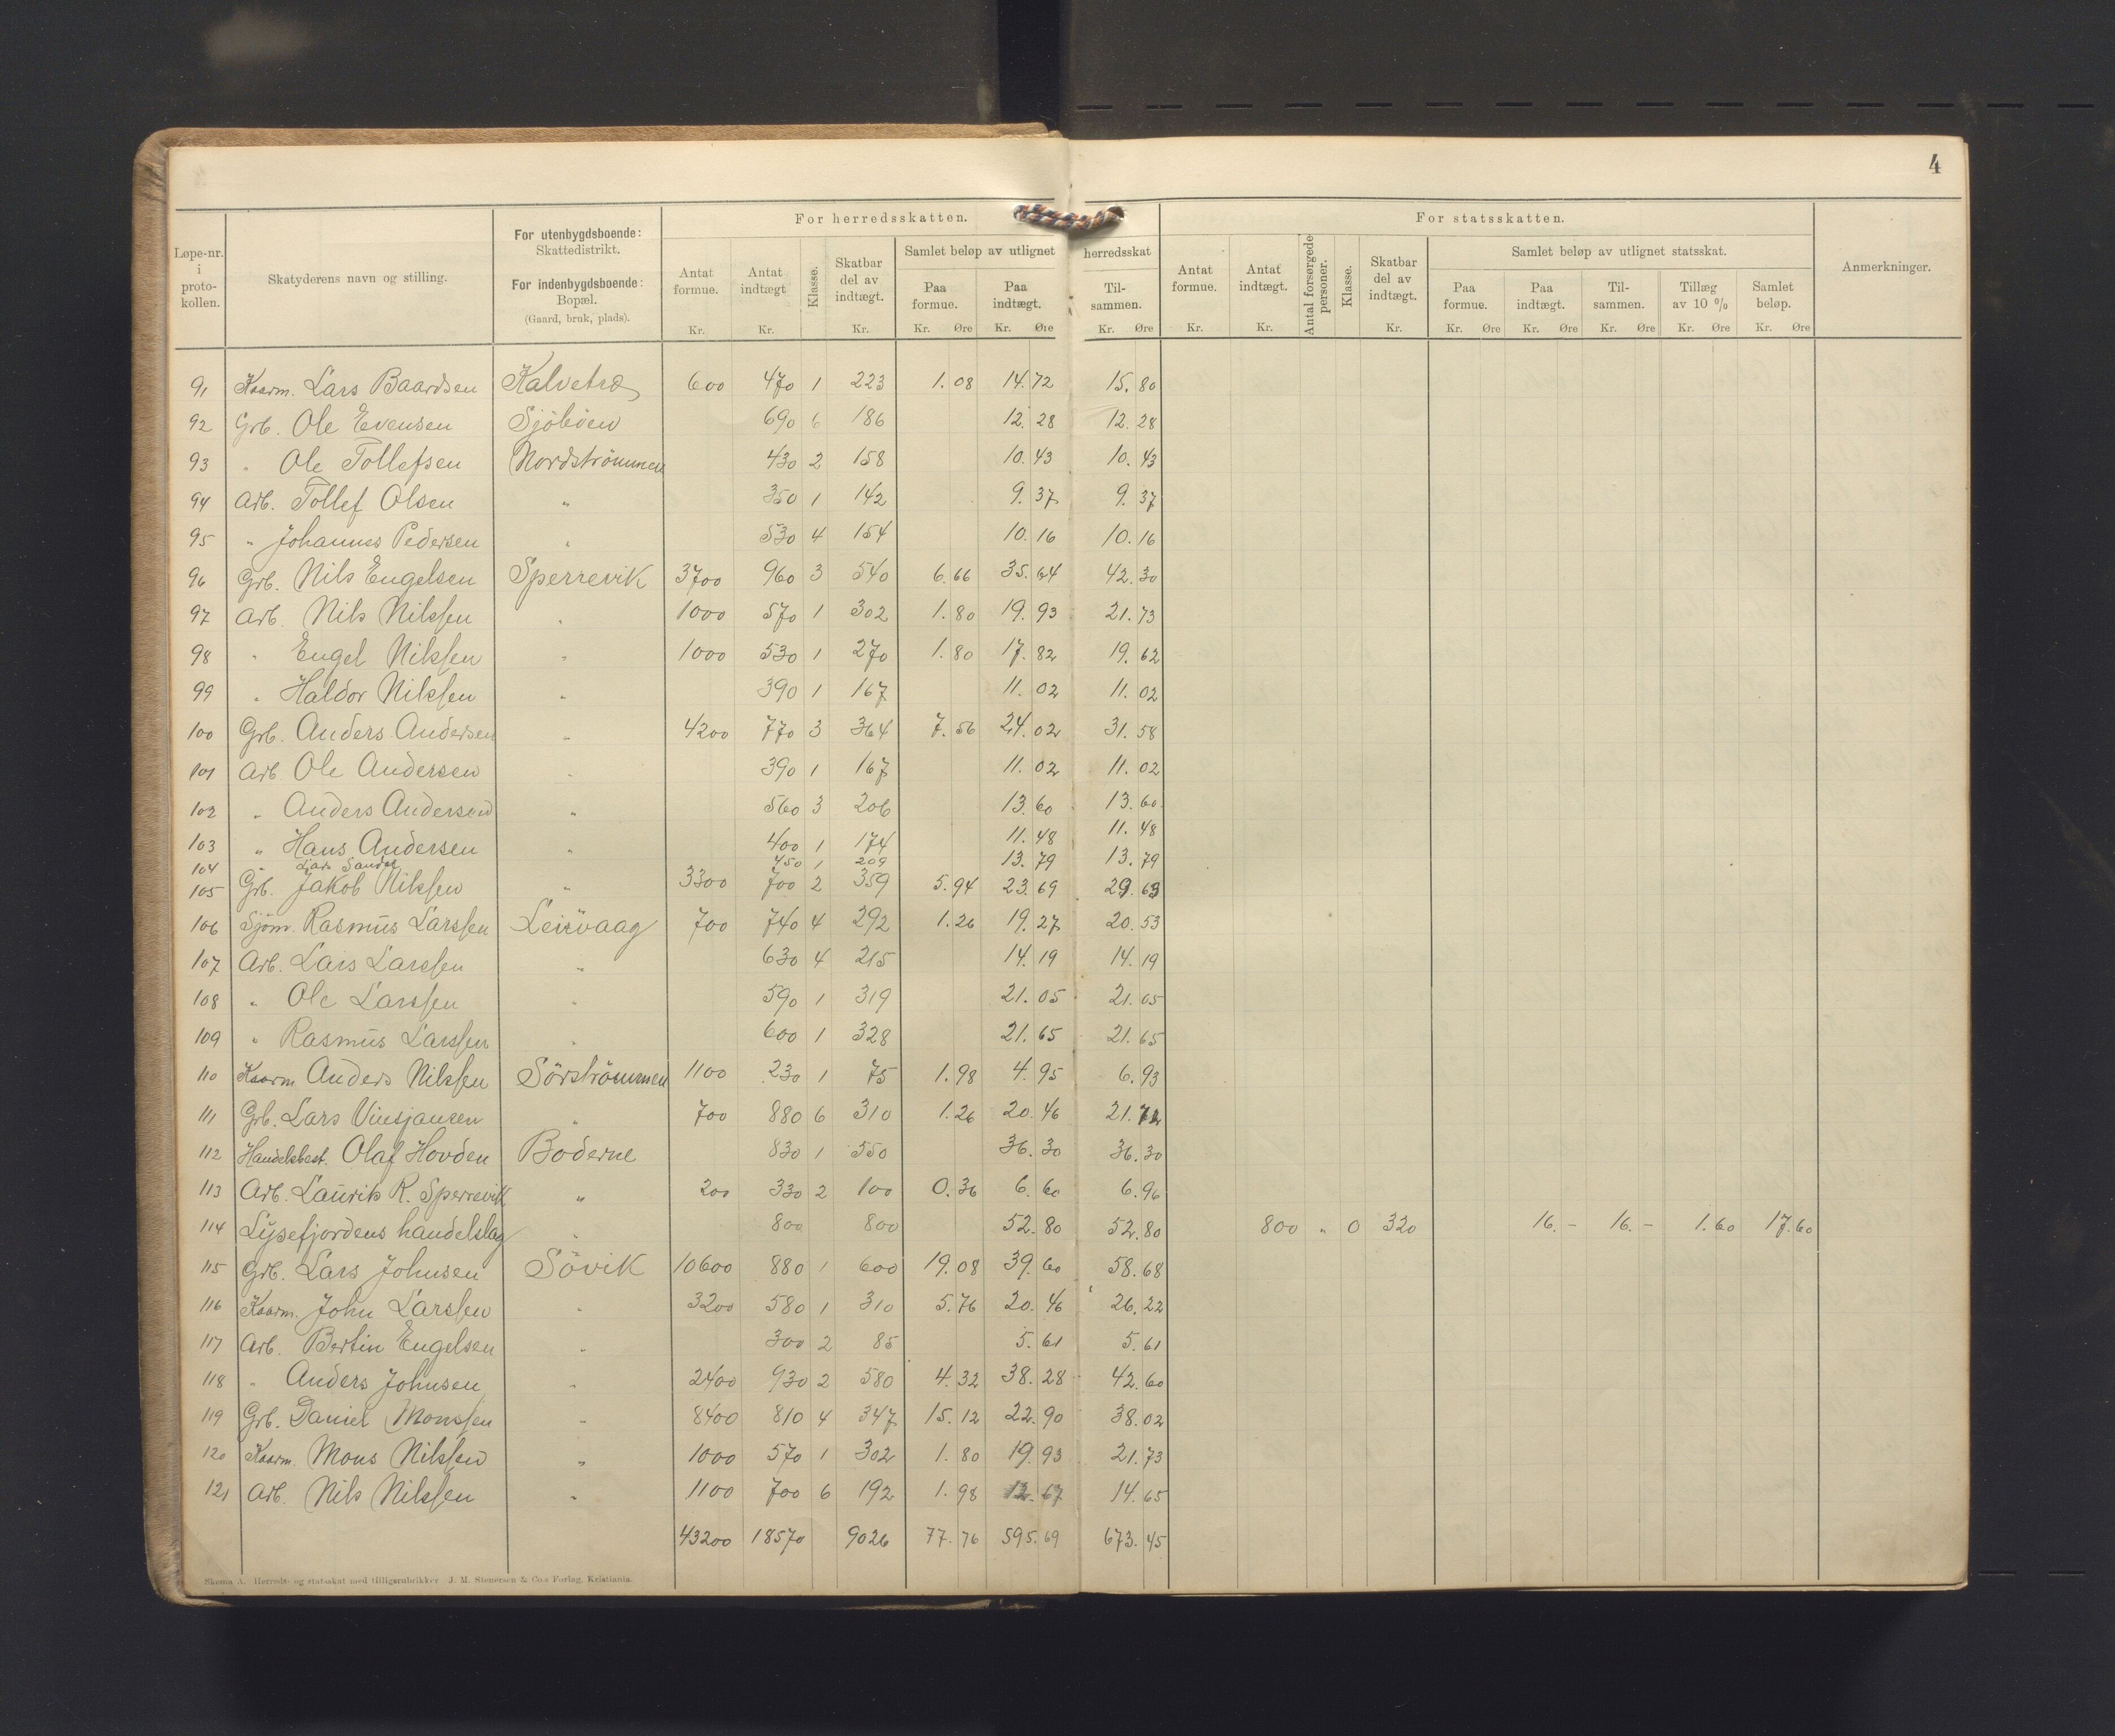 4
For herredsskatten.
For statsskatten.
Løpe-nr. i proto-kollen.
Skatyderens navn og stilling.
For utenbygdsboende:
Skattedistrikt.
For indenbygdsboende:
Bopæl.
(Gaard, bruk, plads).
Antat formue. Kr.
Antat indtægt Kr.
Klasse.
Skatbar del av indtægt. Kr.
Samlet beløp av utlignet herredsskat
Paa formue. Kr. Øre
Paa indtægt. Kr. Øre
Til-sammen. Kr. Øre
Antat formue. Kr.
Antat indtægt. Kr.
Antal forsørgede personer.
Klasse.
Skatbar del av indtægt. Kr.
Samlet beløp av utlignet statsskat.
Paa formue. Kr. Øre
Paa indtægt. Kr. Øre
Til-sammen. Kr. Øre
Tillæg av 10 % Kr. Øre
Samlet beløp. Kr. Øre
Anmerkninger.
91 Kaarm. Lars Baardsen Kalvetræ 600 470 1 223 1.08 14.72 15.80
92 Grb. Ole Evensen Sjöböen 690 6 186 12.28 12.28
93 " Ole Tollefsen Nordströmmen 430 2 158 10.43 10.43
94 Arb. Tollef Olsen " 350 1 142 9.37 9.37
95 " Johannes Pedersen " 530 4 154 10.16 10.16
96 Grb. Nils Engelsen Sperrevik 3700 960 3 540 6.66 35.64 42.30
97 Arb. Nils Nilssen " 1000 570 1 302 1.80 19.93 21.73
98 " Engel Nilssen " 1000 530 1 270 1.80 17.82 19.62
99 " Haldor Nilssen " 390 1 167 11.02 11.02
100 Grb. Anders Andersen " 4200 770 3 364 7.56 24.02 31.58
101 Arb. Ole Andersen " 390 1 167 11.02 11.02
102 " Anders Andersen " 560 3 206 13.60 13.60
103 " Hans Andersen " 400 1 174 11.48 11.48
104 " Lars Sandal 450 1 209 13.79 13.79
105 Grb. Jakob Nilssen " 3300 700 2 359 5.94 23.69 29.63
106 Sjöm. Rasmus Larssen Leirvaag 700 740 4 292 1.26 19.27 20.53
107 Arb. Lars Larssen " 630 4 215 14.19 14.19
108 " Ole Larssen " 590 1 319 21.05 21.05
109 " Rasmus Larssen " 600 1 328 21.65 21.65
110 Kaarm Anders Nilssen Sörströmmen 1100 230 1 75 1.98 4.95 6.93
111 Grb. Lars Vinsjansen " 700 880 6 310 1.26 20.46 21.72
112 Handelsbest. Olaf Hovden Boderne 830 1 550 36.30 36.30
113 Arb. Laurits R. Sperrevik " 200 330 2 100 0.36 6.60 6.96
114 Lysefjordens handelslag " 800 800 52.80 52.80 800 " 0 320 16.- 16.- 1.60 17.60
115 Grb. Lars Johnsen Sövik 10600 880 1 600 19.08 39.60 58.68
116 Kaarm. John Larssen " 3200 580 1 310 5.76 20.46 26.22
117 Arb. Bertin Engelsen " 300 2 85 5.61 5.61
118 " Anders Johnsen " 2400 930 2 580 4.32 38.28 42.60
119 Grb. Daniel Monssen " 8400 810 4 347 15.12 22.90 38.02
120 Kaarm. Mons Nilssen " 1000 570 1 302 1.80 19.93 21.73
121 Arb. Nils Nilssen " 1100 700 6 192 1.98 12.67 14.65
43200 18570 9026 77.76 595.69 673.45
Skema A. Herreds- og statsskat med tilligsrubrikker J. M. Stenersen & Co.s Forlag, Kristiania.